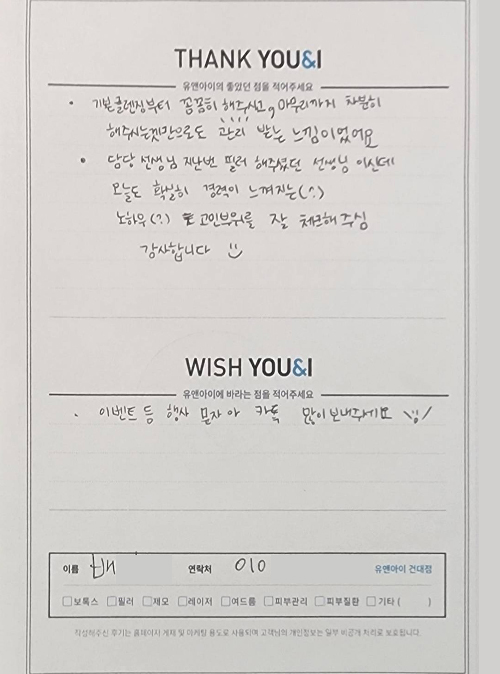 THANK YOU&I
유앤아이의 좋았던 점을 적어주세요
• 기본 클렌징부터 꼼꼼히 해주시고, 마무리까지 차분히
해주시는것만으로도 관리 받는 느낌이었어요
• 담당 선생님 지난번 필러 해주셨던 선생님 이신데
오늘도 확실히 경력이 느껴지는(?)
노하우(?) 로 고민부위를 잘 체크해주심
감사합니다 :)
WISH YOU&I
유앤아이에 바라는 점을 적어주세요
• 이벤트 등 행사 문자 카톡 많이 보내주세요
이름 배 연락처 010 유앤아이 건대점
□보톡스 □필러 □제모 □레이저 □여드름 □피부관리 □피부질환 □기타 ( )
작성해주신 후기는 홈페이지 게재 및 마케팅 용도로 사용되며 고객님의 개인정보는 일부 비공개 처리로 보호됩니다.